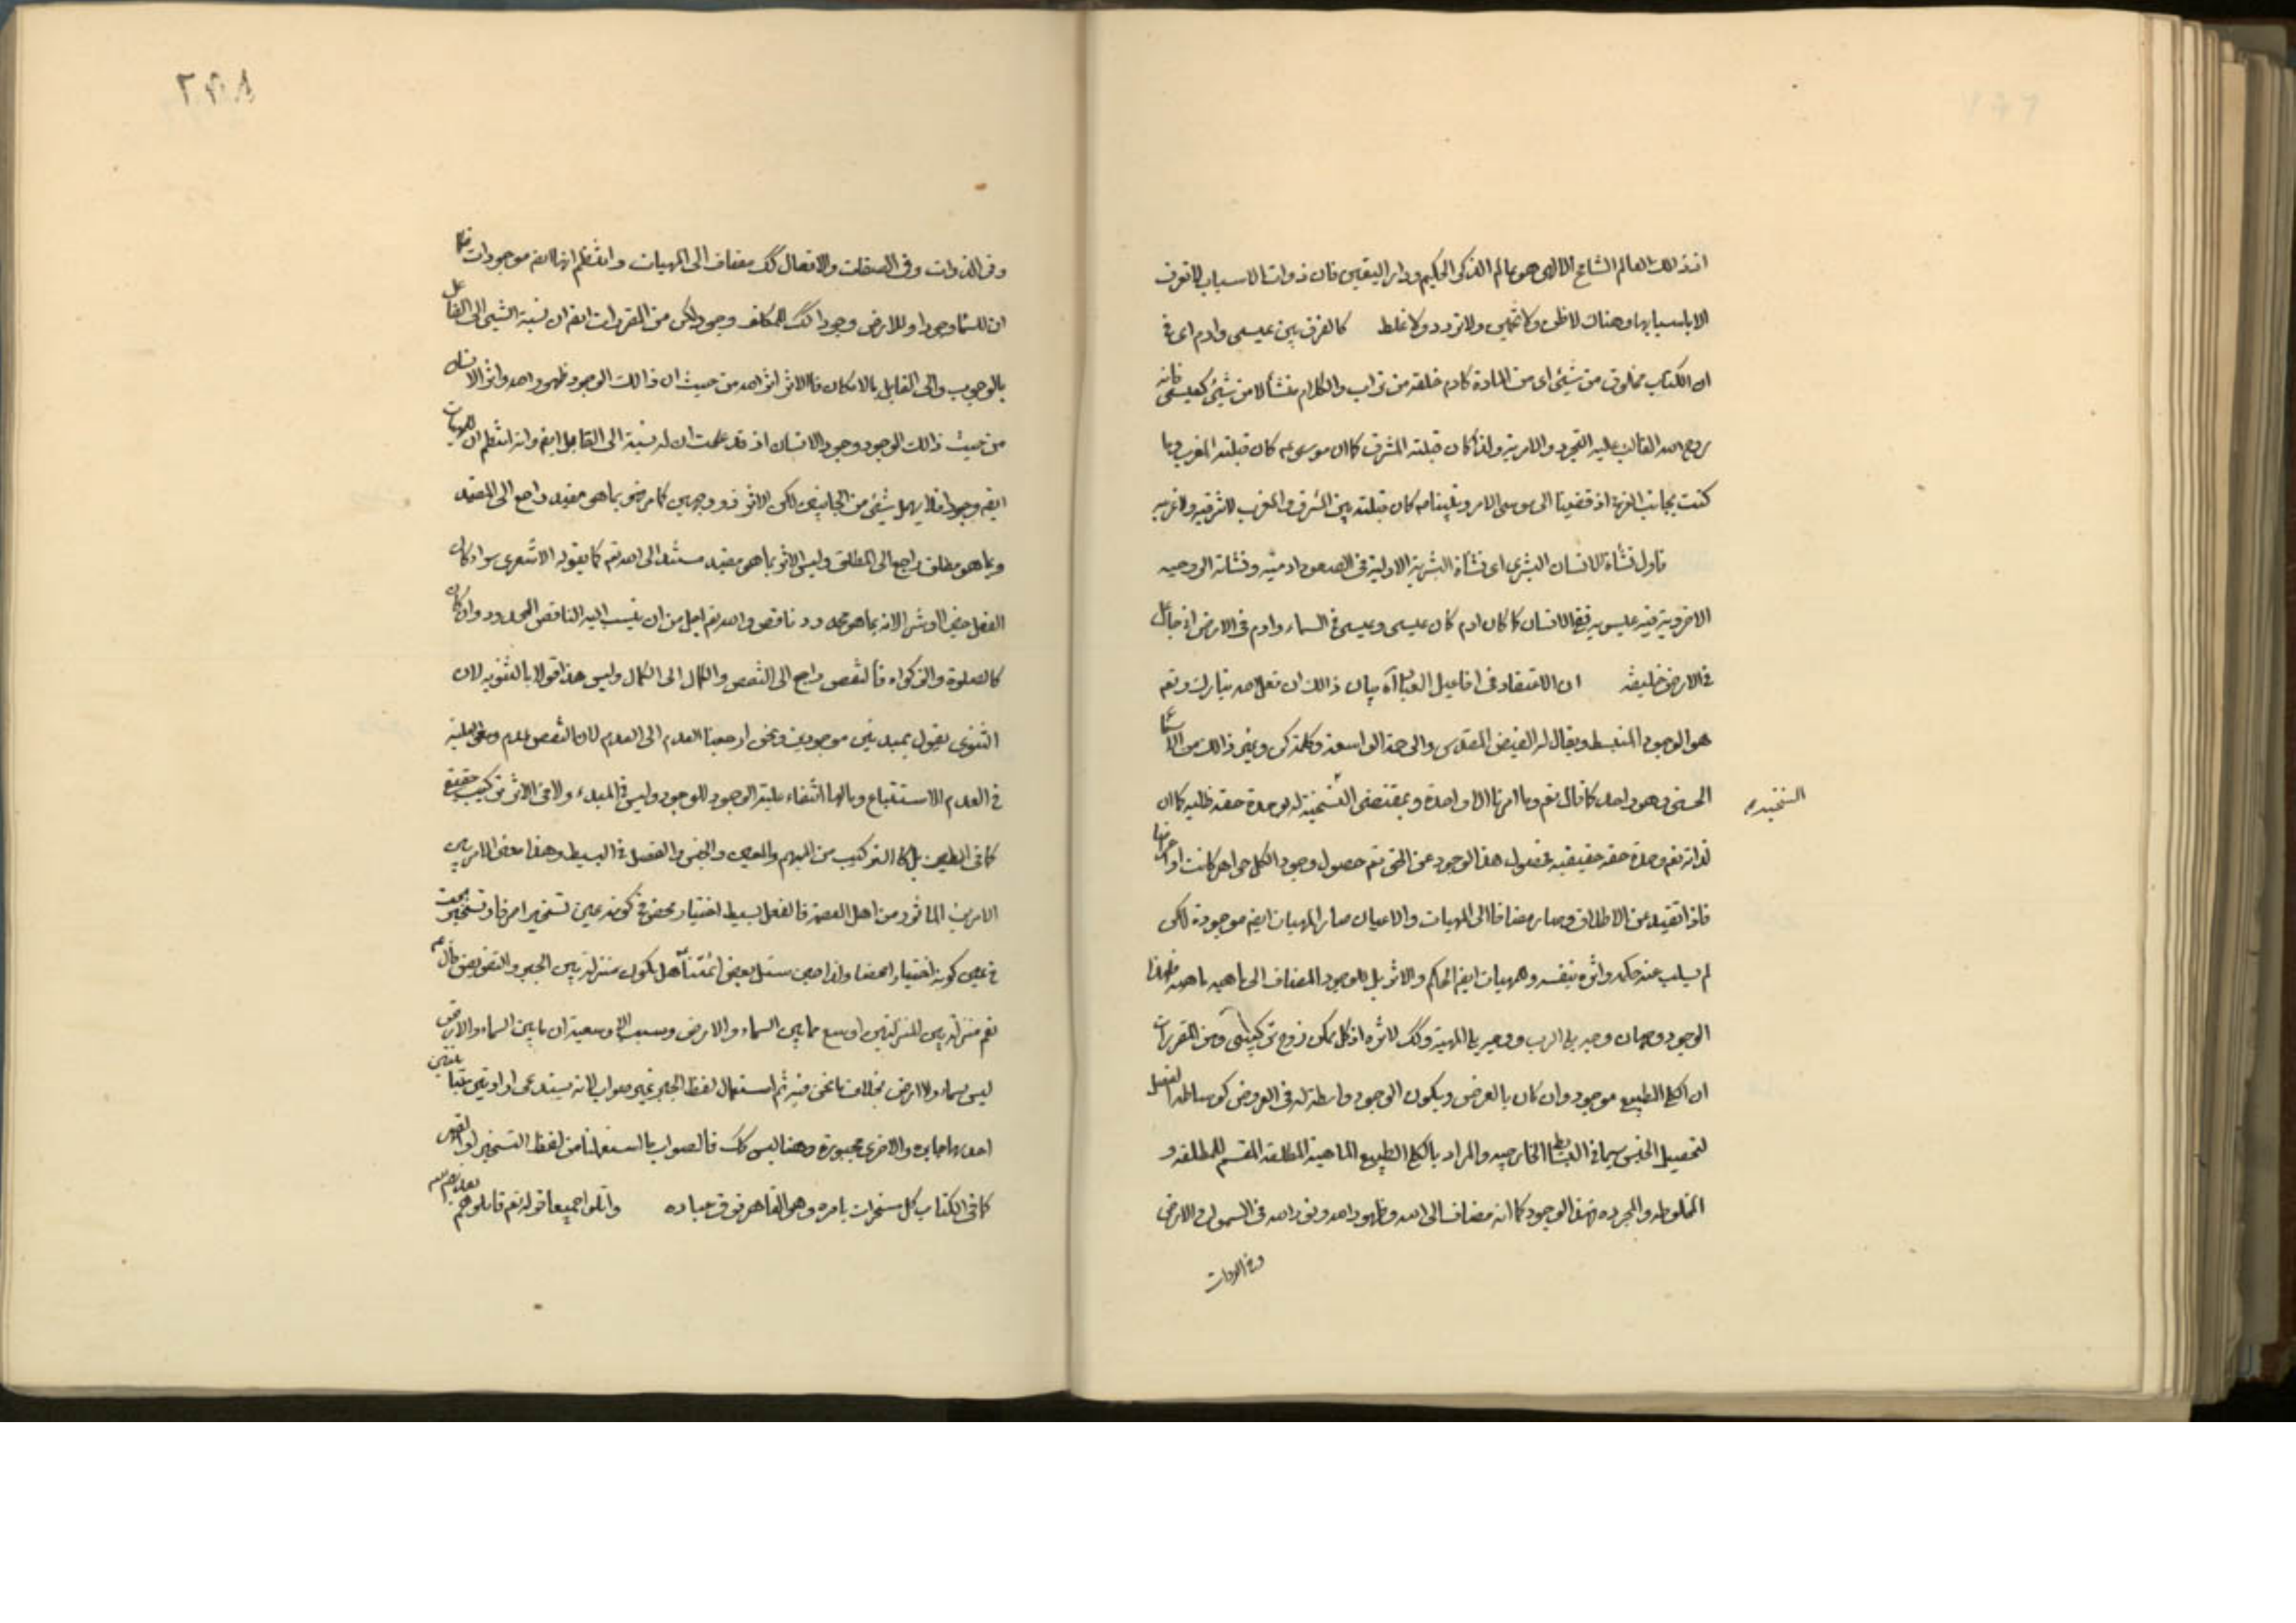 اذ ذلك العالم الشامخ الالهى هو عالم الذكر الحكيم ودار اليقين فان ذوات الاسباب لا تعرف
الا باسبابها وهناك لا ظن ولا تخمين ولا تردد ولا غلط كالفرق بين عيسى وادم اى فى
ان الكتاب مخلوق من شيئ اى من المادة كادم خلقه من تراب والكلام منشأ لا من شيئ كعيسى فانه
روح الله الغالب عليه التجرد والامرية ولذا كان قبلته المشرق كما ان موسى ع كان قبلته المغرب وما
كنت بجانب الغربى اذ قضينا الى موسى الامر ونبينا ص كان قبلته بين المشرق والمغرب لا شرقيه ولا غربيه
فاول نشأة الانسان البشرى اى نشأة البشرية الاولية فى الصعود ادميه ونشاته الروحيه
الاخروية فيه عيسويه فقع الانسان كما كان ادم كان عيسى وعيسى فى السماء وادم فى الارض انى جاعل
فى الارض خليفه ان الاعتقاد فى افاعيل العباد آه بيان ذالك ان فعل الله تبارك وتعم
هو الوجود المنبسط ويقال له الفيض المقدس والرحمة الواسعة وكلمة كن وغير ذالك من الاسماء
الحسنى وهو واحد كما قال تعم وما امرنا الا واحدة وبمقتضى السنخية له وحدة حقه ظليه كما ان
السنخيه
لذاته تعم وحدة حقه حقيقيه فحصول هذا الوجود عن الحق تعم حصول وجود الكل جواهر كانت او اعراضها
فاذا تقيد عن الاطلاق وصار مضافا الى المهيات والاعيان صار المهيات ايضم موجودة لكن
لم يسلب عنه حكمه واثره بنفسه وللمهيات ايضم الحكم والاثر بل للوجود المضاف الى ماهيه ماهيه فلهذا
الوجود وجهان وجه يلى الرب ووجه يلى المهية وكك لاثره اذ كل ممكن زوج تركيبى ومن المقررات
ان الكلى الطبيعى موجود وان كان بالعرض ويكون الوجود واسطة له فى العروض كوساطة الفصل
لتحصيل الجنس سيما فى البسائط الخارجيه والمراد بالكلى الطبيعى الماهية المطلقه المقسم للمطلقه و
المخلوطه والمجرده فهذا الوجود كما انه مضاف الى الله وظهور الله ونور الله فى السموات والارض
وفى الذوات
٢٩٨
وفى الذوات وفى الصفات والافعال كك مضاف الى المهيات وانتظم انها ايضم موجودات فكما
ان للسماء وجودا وللارض وجودا كك للمكلف وجود لكن من المقررات ايضم ان نسبة الشيئ الى الفاعل
بالوجوب والى القابل بالامكان فالاثر اثر الله من حيث ان ذالك الوجود ظهور الله واثر الانسان
من حيث ذالك الوجود وجود الانسان اذ قد علمت ان له نسبة الى القابل ايضم وانه انتظم ان للمهيات
ايضم وجودا فلا يهمل شيئ من الجانبين لكن الاثر ذو وجهين كما مرض بما هو مقيد راجع الى المقيد
وبما هو مطلق راجع الى المطلق وليس الاثر بما هو مقيد مستندا الى الله تعم كما يقوله الاشعرى سواء كان
الفعل خيرا او شرا لانه بما هو محدود ناقص والله تعم اجل من ان ينسب اليه الناقص المحدود وان كان
كالصلوة والزكواه فالنقص راجع الى النقص والكمال الى الكمال وليس هذا قولا بالثنويه لان
الثنوى يقول بمبدئين موجودين ونحن ارجعنا العدم الى العدم لان النقص عدم ومعنى العلية
فى العدم الاستتباع ومالها انتفاء علية الوجود للوجود وليس فى المبدء ولا فى الاثر تركيب حقيقى
كما فى الطين بل كالتركيب من المبهم والمعين والجنس والفصل فى البسيط وهذا معنى الامر بين
الامرين الماثور من اهل العصمة فالفعل بسيط اختيار محض فى كونه عين تسخير صرف وتسخير بحت
فى عين كونه اختيارا محضا ولذا حين سئل بعض ائمتنا هل يكون منزلة بين الجبر والتفويض قال ع
نعم منزلة بين المنزلتين اوسع مما بين السماء والارض وسبب الاوسعية ان ما بين السماء والارض
ليس سماء ولا ارض بخلاف ما نحن فيه ثم استعمال لفظ الجبر غير صواب لانه يستدعى ارادتين متباينتين
احديهما جابره والاخرى مجبورة وهنا ليس كك فالصواب ما استعملنا من لفظ التسخير او القهر
كما فى الكتاب كل مسخرات بامره وهو القاهر فوق عباده واتلوا جميعا قوله تعم قاتلوهم يعذبهم الله